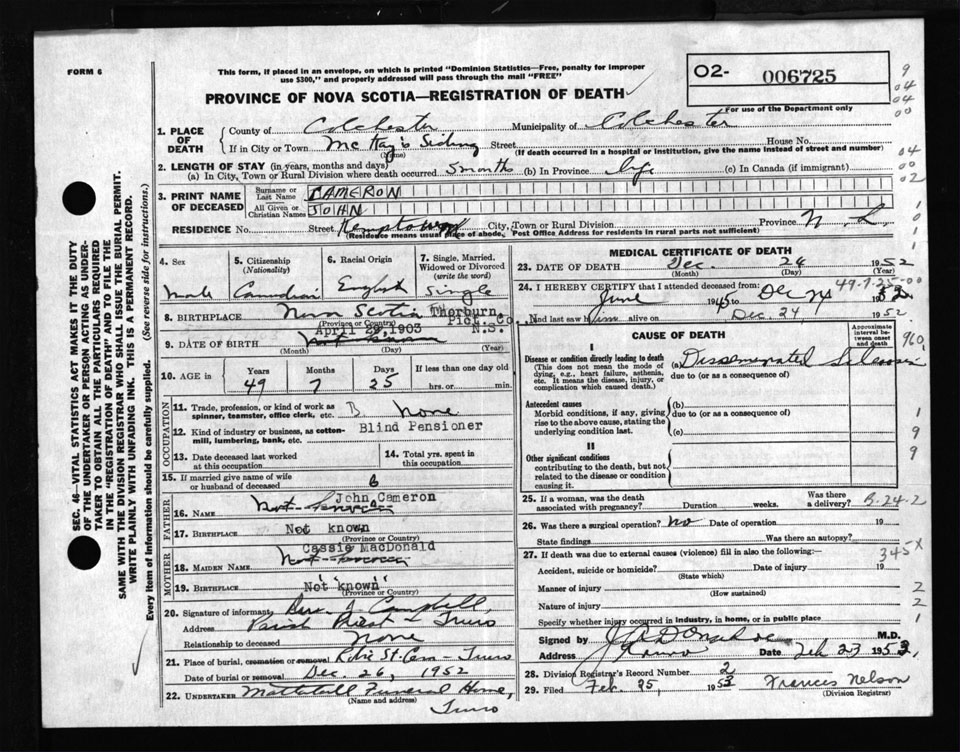 FORM 6
This form, if placed in an envelope, on which is printed "Dominion Statistics—Free, penalty for improper
use $300," and properly addressed will pass through the mail "FREE"
02- 006725
For use of the Department only
PROVINCE OF NOVA SCOTIA—REGISTRATION OF DEATH
1. PLACE OF DEATH
County of Colchester Municipality of Colchester
If in City or Town McKay's Siding Street House No.
(Name) (If death occurred in a hospital or institution, give the name instead of street and number)
2. LENGTH OF STAY (in years, months and days)
(a) In City, Town or Rural Division where death occurred 5 months (b) In Province life (c) In Canada (if immigrant)
3. PRINT NAME OF DECEASED
Surname or Last Name CAMERON
All Given or Christian Names JOHN
RESIDENCE No. Street Kemptown City, Town or Rural Division Province N. S.
(Residence means usual place of abode, Post Office Address for residents in rural parts not sufficient)
4. Sex
Male
5. Citizenship (Nationality)
Canadian
6. Racial Origin
English
7. Single, Married, Widowed or Divorced (write the word)
Single
8. BIRTHPLACE Nova Scotia Thorburn, Pic. Co., N.S.
(Province or Country)
9. DATE OF BIRTH April 29, 1903
(Month) (Day) (Year)
10. AGE in
Years 49 Months 7 Days 25 If less than one day old hrs. or min.
OCCUPATION
11. Trade, profession, or kind of work as spinner, teamster, office clerk, etc. B None
12. Kind of industry or business, as cotton-mill, lumbering, bank, etc. Blind Pensioner
13. Date deceased last worked at this occupation
14. Total yrs. spent in this occupation
15. If married give name of wife or husband of deceased
FATHER
16. NAME Not known John Cameron
17. BIRTHPLACE Not known
(Province or Country)
MOTHER
18. MAIDEN NAME Not known Cassie MacDonald
19. BIRTHPLACE Not known
(Province or Country)
20. Signature of informant J. Campbell,
Address Parish Priest - Truro
Relationship to deceased None
21. Place of burial, cremation or removal Robie St. Cem - Truro
Date of burial or removal Dec. 26, 1952
22. UNDERTAKER Mattatall Funeral Home,
(Name and address)
Truro
MEDICAL CERTIFICATE OF DEATH
23. DATE OF DEATH Dec. 24 1952
(Month) (Day) (Year)
49-7-25-00
24. I HEREBY CERTIFY that I attended deceased from:
June 1945 to Dec 24 1952
And last saw him alive on Dec. 24 1952
CAUSE OF DEATH
Approximate interval between onset and death
I
Disease or condition directly leading to death
(This does not mean the mode of dying, e.g., heart failure, asthenia, etc. It means the disease, injury, or complication which caused death.)
(a) Disseminated Sclerosis
due to (or as a consequence of)
Antecedent causes
Morbid conditions, if any, giving rise to the above cause, stating the underlying condition last.
(b)
due to (or as a consequence of)
(c)
II
Other significant conditions
contributing to the death, but not related to the disease or condition causing it.
25. If a woman, was the death associated with pregnancy? Duration weeks. Was there a delivery? B-24-2
26. Was there a surgical operation? No Date of operation 19
State findings Was there an autopsy?
27. If death was due to external causes (violence) fill in also the following:— 345X
Accident, suicide or homicide? Date of injury 19
(State which)
Manner of injury
(How sustained)
Nature of injury
Specify whether injury occurred in industry, in home, or in public place
Signed by M.D.
Address Truro Date Feb 23 1953.
28. Division Registrar's Record Number 2
29. Filed Feb. 25, 1953 Frances Nelson
(Division Registrar)
SEC. 46—VITAL STATISTICS ACT MAKES IT THE DUTY
OF THE UNDERTAKER OR PERSON ACTING AS UNDER-
TAKER TO OBTAIN ALL THE PARTICULARS REQUIRED
IN THE "REGISTRATION OF DEATH" AND TO FILE THE
SAME WITH THE DIVISION REGISTRAR WHO SHALL ISSUE THE BURIAL PERMIT.
WRITE PLAINLY WITH UNFADING INK. THIS IS A PERMANENT RECORD.
Every item of Information should be carefully supplied. (See reverse side for instructions.)
9
04
04
00
04
00
02
1
0
1
1
960
1
9
9
2
2
1